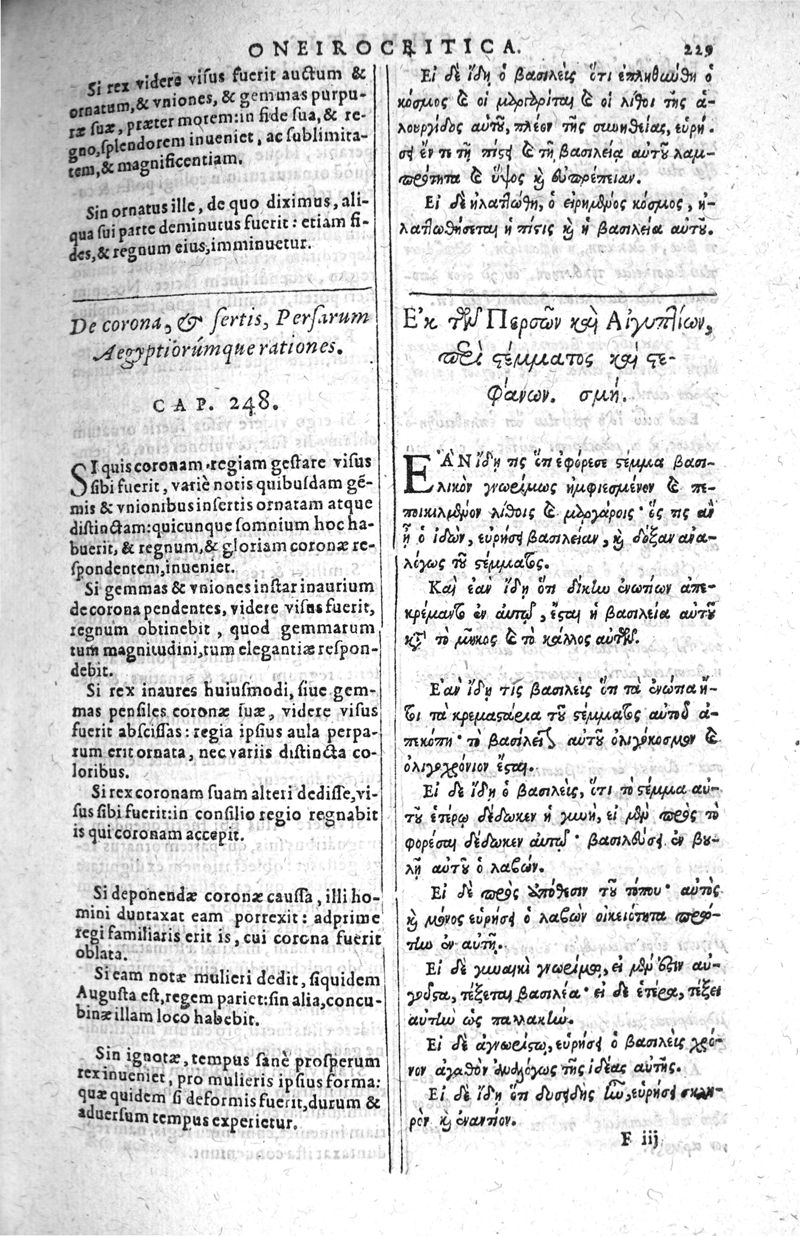 ONEIROCRITICA. 229
Si rex videre visus fuerit auctum &
ornatum, & vniones, & gemmas purpu-
ræ suæ, præter morem: in fide sua, & re-
gno, splendorem inueniet, ac sublimita-
tem, & magnificentiam.
Sin ornatus ille, de quo diximus, ali-
qua sui parte deminutus fuerit: etiam fi-
des, & regnum eius, imminuetur.
De corona, & sertis, Persarum
Aegyptiorúmque rationes.
CAP. 248.
SI quis coronam regiam gestare visus
sibi fuerit, variè notis quibusdam gē-
mis & vnionibus insertis ornatam atque
distinctam: quicunque somnium hoc ha-
buerit, & regnum, & gloriam coronæ re-
spondentem, inueniet.
Si gemmas & vniones instar inaurium
de corona pendentes, videre visus fuerit,
regnum obtinebit, quod gemmarum
tum magnitudini, tum elegantiæ respon-
debit.
Si rex inaures huiusmodi, siue gem-
mas pensiles coronæ suæ, videre visus
fuerit abscissas: regia ipsius aula perpa-
rum erit ornata, nec variis distincta co-
loribus.
Si rex coronam suam alteri dedisse, vi-
sus sibi fuerit: in consilio regio regnabit
is qui coronam accepit.
Si deponendæ coronæ caussa, illi ho-
mini duntaxat eam porrexit: adprime
regi familiaris erit is, cui corona fuerit
oblata.
Si eam notæ mulieri dedit, siquidem
Augusta est, regem pariet: sin alia, concu-
binæ illam loco habebit.
Sin ignotæ, tempus sanè prosperum
rex inueniet, pro mulieris ipsius forma:
quæ quidem si deformis fuerit, durum &
aduersum tempus experietur.
Εἰ δὲ ἴδῃ ὁ βασιλεὺς ὅτι ἐπληθύνθη ὁ
κόσμος καὶ οἱ μαργαρῖται καὶ οἱ λίθοι τῆς ἁ-
λουργίδος αὐτοῦ, πλέον τῆς συνηθείας, εὑρή-
σει ἔν τε τῇ πίστει καὶ τῇ βασιλείᾳ αὐτοῦ λαμ-
πρότητα καὶ ὕψος καὶ εὐπρέπειαν.
Εἰ δὲ ἠλαττώθη, ὁ εἰρημένος κόσμος, ἠ-
λαττωθήσεται ἡ πίστις καὶ ἡ βασιλεία αὐτοῦ.
Ἐκ τῶν Περσῶν καὶ Αἰγυπτίων,
περὶ στέμματος καὶ στε-
φάνων. σμή.
ἘΑΝ ἴδῃ τις ὅτι ἐφόρεσε στέμμα βασι-
λικὸν γνωρίμως ἠμφιεσμένον καὶ πε-
ποικιλμένον λίθοις καὶ μαργάροις· ὅς τις ἂν
ᾖ ὁ ἰδὼν, εὑρήσει βασιλείαν, καὶ δόξαν ἀνα-
λόγως τοῦ στέμματος.
Καὶ ἐὰν ἴδῃ ὅτι δίκην ἐνωτίων ἀπε-
κρέμαντο ἐν αὐτῷ, ἔσται ἡ βασιλεία αὐτοῦ
κατὰ τὸ μῆκος καὶ τὸ κάλλος αὐτῶν.
Ἐὰν ἴδῃ τις βασιλεὺς ὅτι τὰ ἐνώτια ἤ-
τοι τὰ κρεμαστάρια τοῦ στέμματος αὐτοῦ ἀ-
πεκόπη· τὸ βασίλειον αὐτοῦ ὀλιγόκοσμον καὶ
ὀλιγόχρόνιον ἔσται.
Εἰ δὲ ἴδῃ ὁ βασιλεὺς, ὅτι τὸ στέμμα αὐ-
τοῦ ἑτέρῳ δέδωκεν ἢ γυνῇ, εἰ μὲν πρὸς τὸ
φορέσαι δέδωκεν αὐτῷ· βασιλεύσει ἐν βυ-
λῇ αὐτοῦ ὁ λαβών.
Εἰ δὲ πρὸς ὑπόθεσιν τοῦ τόπου· αὐτὸς
καὶ μόνος εὑρήσει ὁ λαβὼν οἰκειότητα πρώ-
την ἐν αὐτῇ.
Εἰ δὲ γυναικὶ γνωρίμῳ, εἰ μέν ἐστιν αὐ-
γοῦστα, τέξεται βασιλέα· εἰ δὲ ἑτέρα, τέξει
αὐτὴν ὡς παλλακὴν.
Εἰ δὲ ἀγνωρίστῳ, εὑρήσει ὁ βασιλεὺς χρό-
νον ἀγαθὸν ἀναλόγως τῆς ἰδέας αὐτῆς.
Εἰ δὲ ἴδῃ ὅτι δυσειδὴς ἦν, εὑρήσει σκλη-
ρὸν καὶ ἐναντίον.
F iij